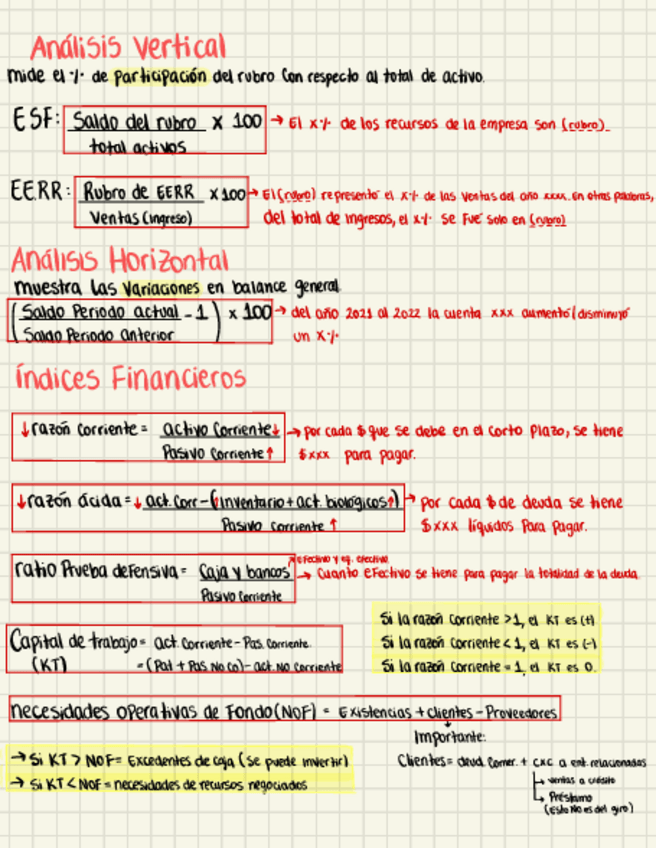 Análisis Vertical
mide el % de participación del rubro con respecto al total de activo.
ESF: Saldo del rubro x 100 → El x% de los recursos de la empresa son (rubro)
total activos
EERR: Rubro de EERR x 100 → El (rubro) representó el x% de las ventas del año xxxx. En otras palabras,
Ventas (ingreso) del total de ingresos, el x% se fue solo en (rubro)
Análisis Horizontal
muestra las variaciones en balance general
(Saldo Periodo actual - 1) x 100 → del año 2021 al 2022 la cuenta xxx aumentó/disminuyó
Saldo Periodo anterior un x%
índices Financieros
↓razón corriente = activo corriente↓ → por cada $ que se debe en el corto plazo, se tiene
Pasivo corriente↑ $xxx para pagar.
↓razón ácida = ↓ act. corr - (inventario + act. biológicos↑) → por cada $ de deuda se tiene
Pasivo corriente ↑ $xxx líquidos para pagar.
↗ efectivo y eq. efectivo
ratio Prueba defensiva = Caja y bancos → Cuanto efectivo se tiene para pagar la totalidad de la deuda.
Pasivo corriente
Capital de trabajo = act. corriente - Pas. corriente.
(KT) = (Pat + Pas No Co) - act. No corriente
Si la razón corriente > 1, el KT es (+)
Si la razón corriente < 1, el KT es (-)
Si la razón corriente = 1, el KT es 0.
necesidades operativas de Fondo (NOF) = Existencias + clientes - Proveedores
↓
Importante:
Clientes = deud. comer. + cxc a ent. relacionadas
↳ ventas a crédito
↳ Préstamo
(esto No es del giro)
→ Si KT > NOF = Excedentes de caja (se puede invertir)
→ Si KT < NOF = necesidades de recursos negociados